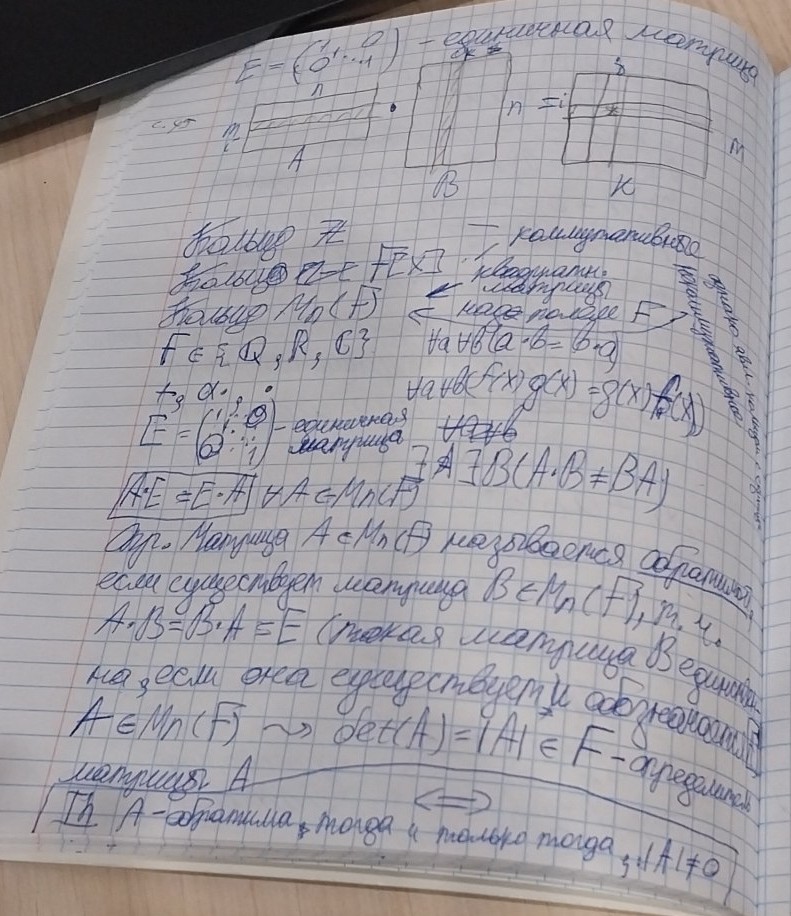 E = (1 0 ⋱ 0 1) – единичная матрица
n
m i · n = i m
A B K
Кольцо Z – коммутативные
Кольцо F[x]
квадратн. матрицы
Кольцо Mn(F) ← над полем F
F ∈ {Q, R, C} ∀a∀b(a·b = b·a)
+, α·, · ∀a∀b(f(x)g(x) = g(x)f(x))
E = (1 0 ⋱ 0 1) – единичная матрица
∃A∃B(A·B ≠ BA)
A·E = E·A ∀A ∈ Mn(F)
Опр. Матрица A ∈ Mn(F) называется обратимой,
если существует матрица B ∈ Mn(F), т. ч.
A·B = B·A = E (такая матрица B единствен-
на, если она существует, и обозначается
A ∈ Mn(F) ⇝ det(A) = |A| ∈ F – определитель
матрицы A
⟺
Th A – обратима, тогда и только тогда, |A| ≠ 0